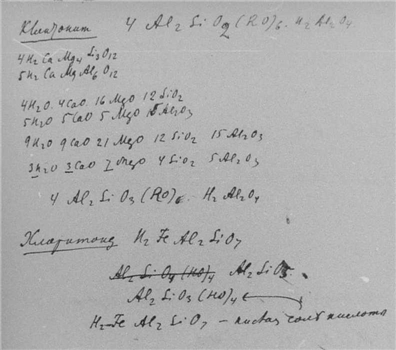 Клинтонит 4 Al₂SiO₂(RO)₆. H₂Al₂O₄
4H₂CaMg₄Si₃O₁₂
5H₂CaMgAl₆O₁₂
4H₂O. 4CaO 16MgO 12SiO₂
5H₂O 5CaO 5MgO 15Al₂O₃
9H₂O 9CaO 21MgO 12SiO₂ 15Al₂O₃
3H₂O 3CaO 7MgO 4SiO₂ 5Al₂O₃
4 Al₂SiO₃(RO)₆. H₂Al₂O₄
Хлоритоид H₂FeAl₂SiO₇
Al₂SiO₄(HO)₄ Al₂SiO₅
Al₂SiO₃(HO)₄
H₂Fe Al₂SiO₇ — кислая соль кислота